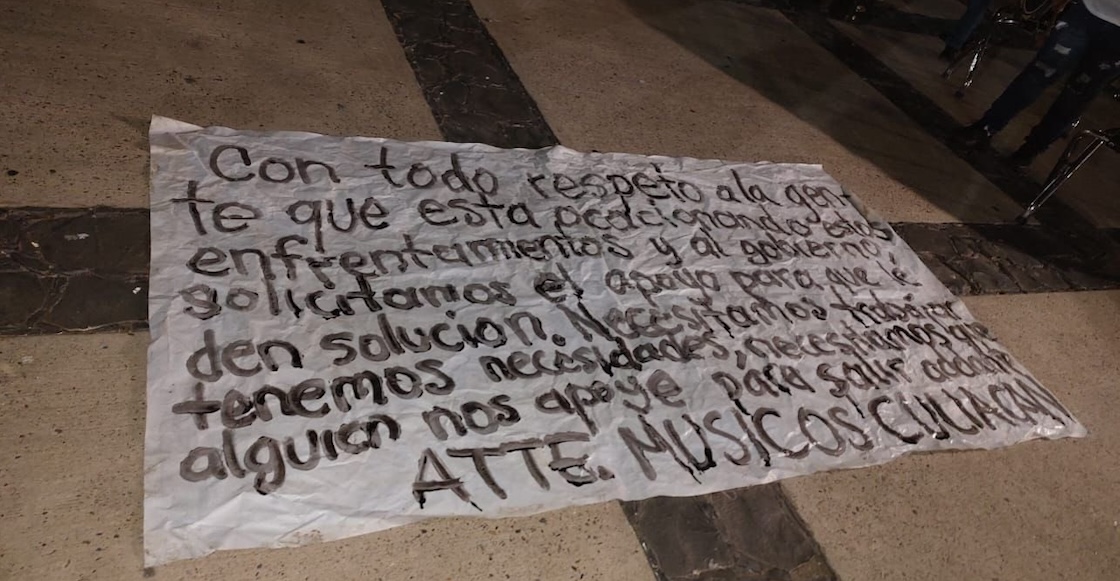 Con todo respeto ala gen
te que esta ocacionando estos
enfrentamientos y al gobierno
solicitamos el apoyo para que le
den solucion. Necesitamos trabajar
tenemos necesidades, necesitamos que
alguien nos apoye para salir adelante
ATTE. MUSICOS CULIACAN